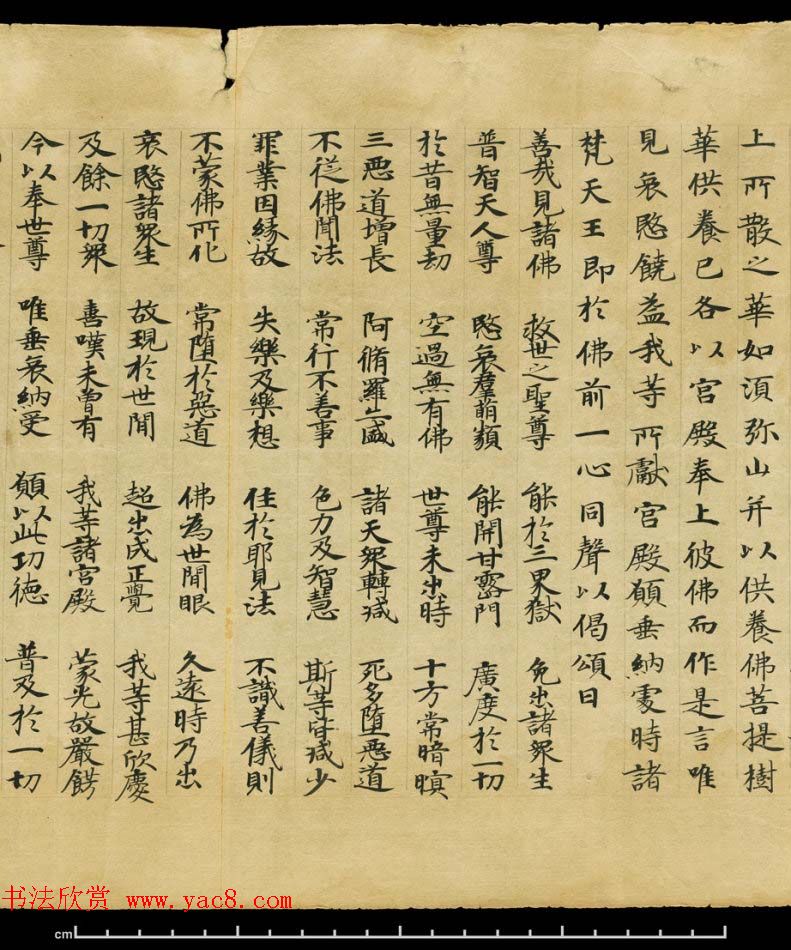 上所散之華如湏弥山并以供養佛菩提樹
華供養已各以宮殿奉上彼佛而作是言唯
見哀愍饒益我等所獻宮殿願垂納處時諸
梵天王即於佛前一心同聲以偈頌曰
善哉見諸佛 救世之聖尊 能於三界獄 免出諸眾生
普智天人尊 愍哀羣萌類 能開甘露門 廣度於一切
於昔無量劫 空過無有佛 世尊未出時 十方常暗暝
三惡道增長 阿脩羅亦盛 諸天眾轉減 死多墮惡道
不從佛聞法 常行不善事 色力及智慧 斯等皆減少
罪業因緣故 失樂及樂想 住於耶見法 不識善儀則
不蒙佛所化 常墮於惡道 佛為世間眼 久遠時乃出
哀愍諸眾生 故現於世間 超出成正覺 我等甚欣慶
及餘一切眾 喜嘆未曾有 我等諸宮殿 蒙光故嚴餝
今以奉世尊 唯垂哀納受 願以此功德 普及於一切
书法欣赏 www.yac8.com
cm